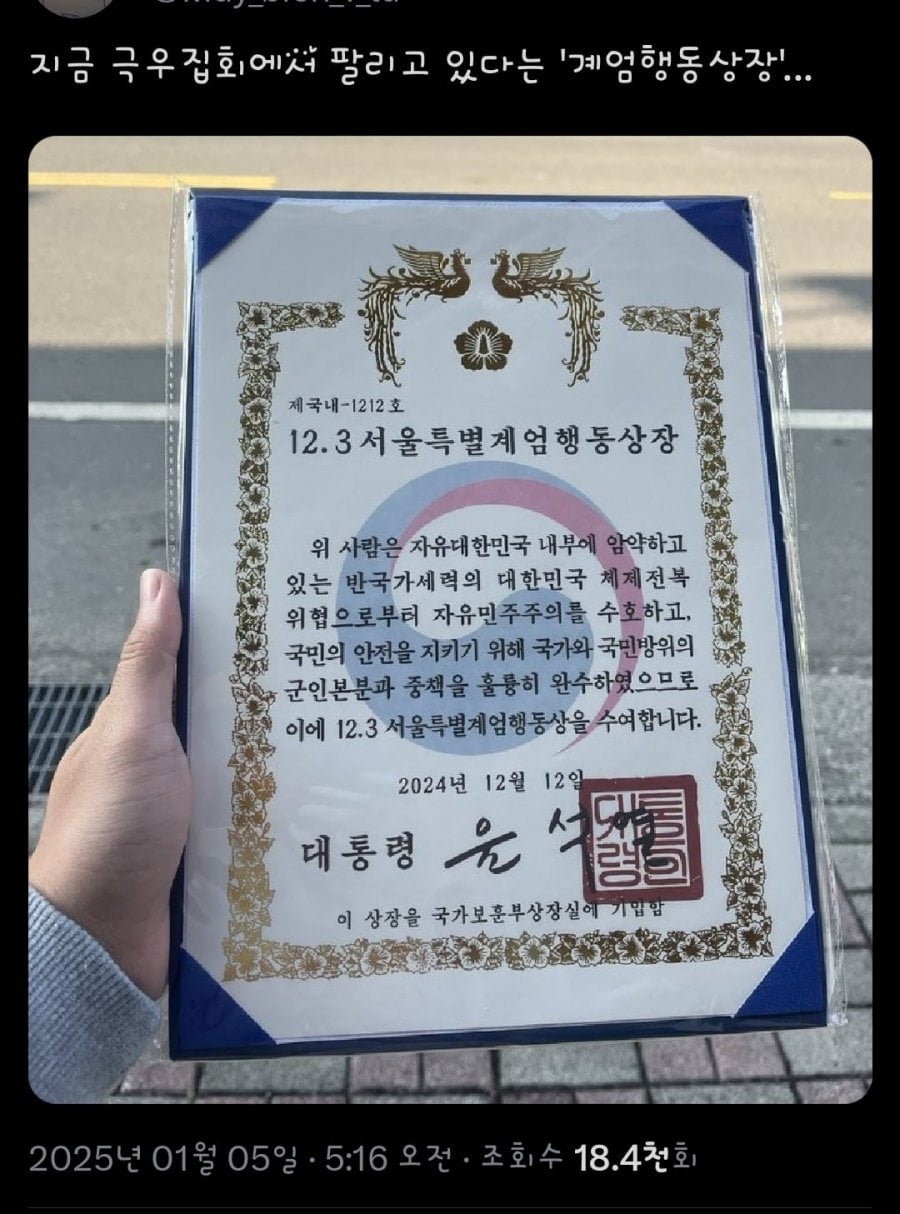 지금 극우집회에서 팔리고 있다는 '계엄행동상장'...
제국내-1212호
12.3 서울특별계엄행동상장
위 사람은 자유대한민국 내부에 암약하고
있는 반국가세력의 대한민국 체제전복
위협으로부터 자유민주주의를 수호하고,
국민의 안전을 지키기 위해 국가와 국민방위의
군인본분과 중책을 훌륭히 완수하였으므로
이에 12.3 서울특별계엄행동상을 수여합니다.
2024년 12월 12일
대통령 윤석열
대통령의
이 상장을 국가보훈부상장실에 기입함
2025년 01월 05일 · 5:16 오전 · 조회수 18.4천회